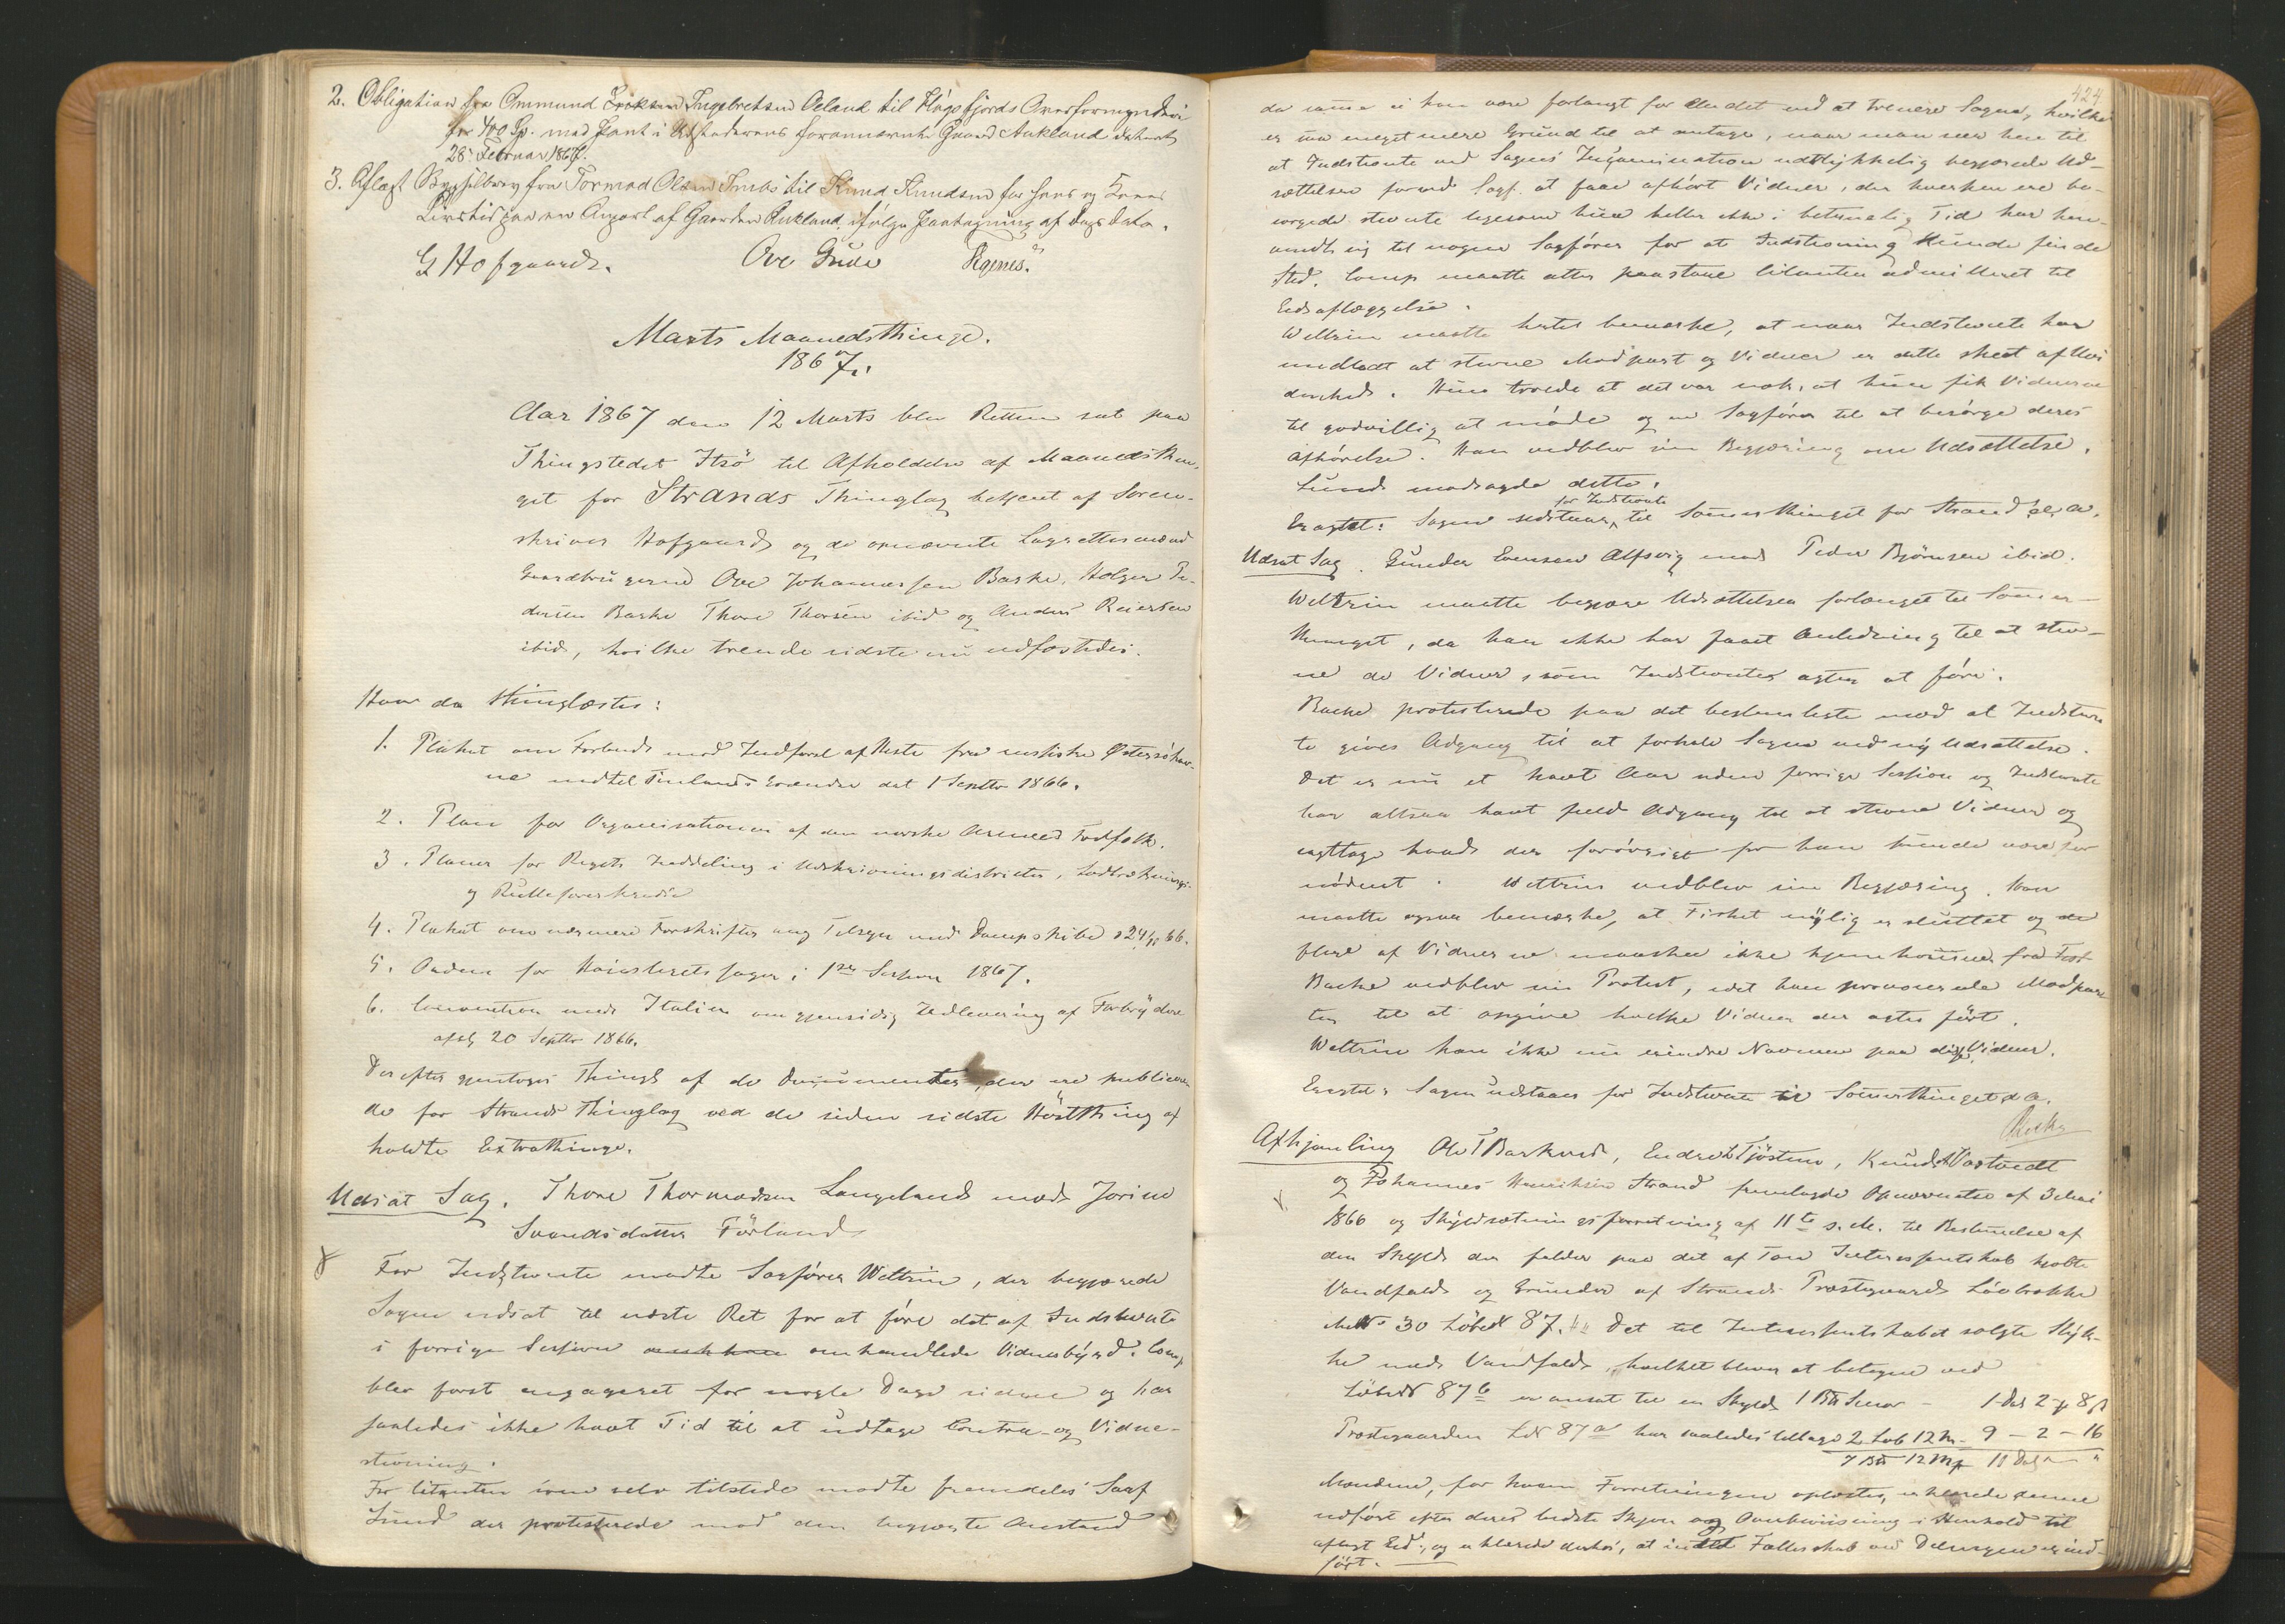 2. Obligation fra Ommund Ingebretsen Oeland til Høgsfjords Overformynderi
for 400 Sp. med Pant i Udstederens forannævnte Gaard Aukland dateret
28. Februar 1867.
3. Aflæst Bygselbrev fra Tormod Olsen til Knud Knudsen for hans og Kones
Livstid paa en Anpart af Gaarden Aukland, ifølge Paategning af Dags Dato.
G Hofgaard. Ove Gude
Marts Maanedsthinge.
1867.
Aar 1867 den 12 Marts blev Retten sat paa
Thingstedet Itsö til Afholdelse af Maanedsthin-
get for Strands Thinglag betjent af Soren-
skriver Hofgaard og de opnævnte Lagrettesmænd
Gaardbrugerne Ove Johannessen Barke, Holger Pe-
dersen Barke Thore Thorsen ibid og Anders Reiersen
ibid, hvilke trende sidste nu edfæstedes.
Hvor da thinglæstes:
1. Plakat om Forbud mod Indførsel af Heste fra russiske Østersøhav-
ne indtil Finlands Grændse dat 1 Septbr 1866.
2. Plan for Organisationen af den norske Armees Fodfolk.
3. Planer for Rigets Inddeling i Udskrivningsdistrikter, Lodtræknings-
og Rulleførerkredse
4. Plakat om nærmere Forskrifter ang Tilsyn med Dampskibe d 24/11 66.
5. Orden for Høiesteretssager i 1ste Session 1867.
6. Convention med Italien om gjensidig Udlevering af Forbrydere
afsl 20 Septbr 1866.
Derefter gjentoges Thingl af de Documenter, der ere publicere-
de for Strands Thinglag ved de siden sidste Høstthing af
holdte Extrathinge.
Udsat Sag. Thore Thormodsen Langeland mod Jorine
Svendsdatter Førland
For Indstevnte mødte Sagfører Weltzin, der begjærede
Sagen udsat til næste Ret for at føre det af Indstevnte
i forrige Session omhandlede Vidnesbyrd. Comp
blev først engageret for nogle Dage siden og har
saaledes ikke havt Tid til at udtage Contra- og Vidne-
stevning.
For Citanten som selv tilstede mødte fremdeles Sagf
Lund der protesterede mod den begjærte Anstand
424
da samme ei kan være forlangt for Andet end at trenere Sagen, hvilket
er saa meget mere Grund til at antage, naar man seer hen til
at Indstevnte ved Sagens Incamination udtrykkelig begjærede Ud-
sættelse forud Sagf. at faae afhørt Vidner, der hverken ere be-
sørgede stevnte ligesom hun heller ikke i betimelig Tid har hen-
vendt sig til nogen Sagfører for at Indstevning kunde finde
Sted. Comp maatte atter paastaae Citanten admitteret til
Edsaflæggelse.
Weltzin maatte hertil bemærke, at naar Indstevnte har
undladt at stevne Modpart og Vidner er dette skeet af Uvi
denhed. Hun troede at det var nok, at hun fik Vidnerne
til godvillig at møde og en Sagfører til at besørge deres
Afhørelse. Han vedblev sin Begjæring om Udsættelse.
Lund modsagde dette.
for Indstevnte
Eragtet: Sagen udstaaer til Sommerthinget for Strand d. A.
Udsat Sag. Gunder Evensen Alfsvig mod Peder Bjørnsen ibid.
Weltzin maatte begjære Udsættelsen forlænget til Sommer-
thinget, da han ikke har faaet Anledning til at stev-
ne de Vidner, som Indstevnte agter at føre.
Backe protesterede paa det bestemteste mod at Indstevn
te gives Adgang til at forhale Sagen ved ny Udsættelse.
Det er nu et halvt Aar siden forrige Session og Indstevnte
har altsaa havt fuld Adgang til at stevne Vidner og
iagttage hvad der forøvrigt for ham kunde være for
nødent. Weltzin vedblev sin Begjæring. Han
maatte ogsaa bemærke, at Fisket nylig er sluttet og de
flere af Vidnerne maaskee ikke hjemkomne fra Fisk
Backe vedblev sin Protest, idet han provocerede Modpar
ten til at angive hvilke Vidner der agtes ført.
Weltzin kan ikke nu erindre Navnene paa disse Vidner.
Eragtet: Sagen udstaaer for Indstevnte til Sommerthinget d A.
Afhjemling Ole T Barkved, Endre Tjøstem, Knud Vastvedt
og Johannes Henriksen Strand fremlagde Opnævnelse af 3 Mai
1866 og Skyldsætningsforretning af 11te s. M. til Bestemmelse af
den Skyld der falder paa det af Tau Interessentskab kjøbte
Vandfald og Grunde af Strands Præstegaards Løebrække
MNo 30 LøbeN 87. Det til Interessentskabet solgte Styk-
ke med Vandfald, hvilket bliver at betegne ved
LøbeN 87 b er ansat til en Skyld 1 Bth Smør - 1 Dal 2 # 8 ß
Præstegaarden LN 87 a har saaledes tilbage 2 Løb 12 M - 9 - 2 - 16
7 Bth 12 Mk 11 Dal " "
Mændene, for hvem Forretningen oplæstes, erklærede denne
udført efter deres bedste Skjøn og Overbeviisning i Henhold til
aflagt Ed, og erklærede derhos, at intet Fællesskab ved Delingen er ind-
ført.